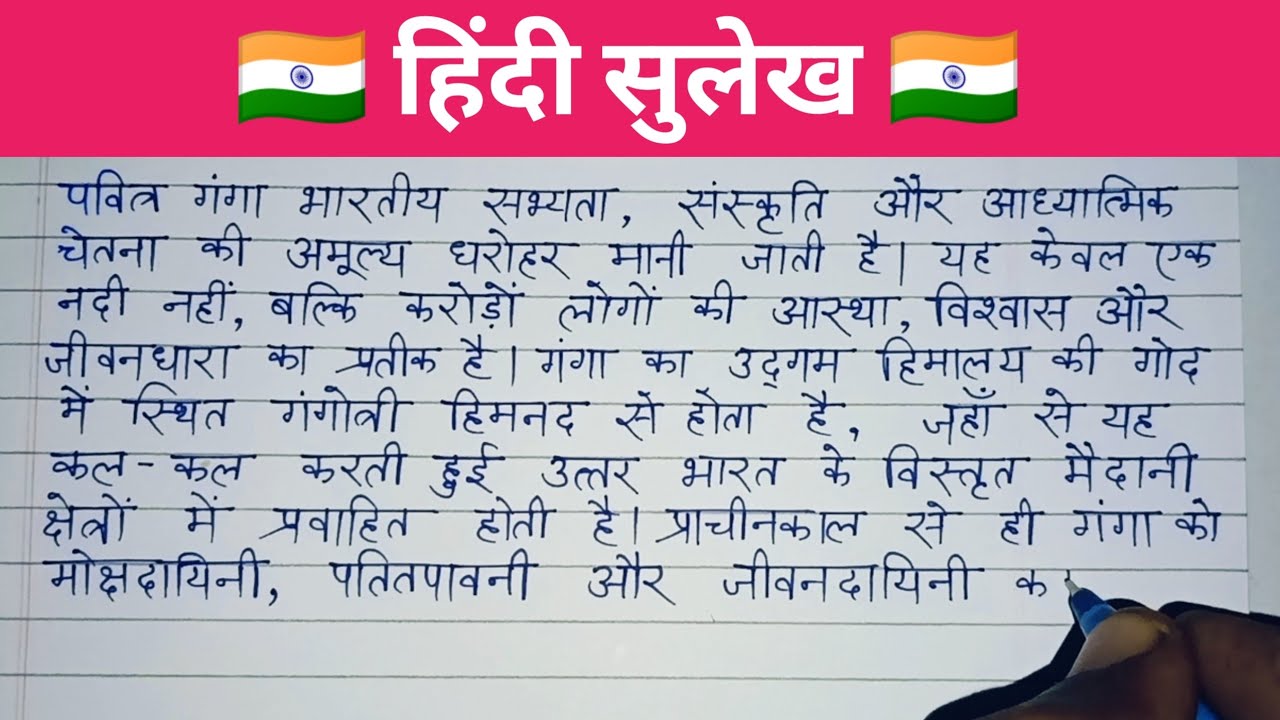 🇮🇳 हिंदी सुलेख 🇮🇳
पवित्र गंगा भारतीय सभ्यता, संस्कृति और आध्यात्मिक
चेतना की अमूल्य धरोहर मानी जाती है। यह केवल एक
नदी नहीं, बल्कि करोड़ों लोगों की आस्था, विश्वास और
जीवनधारा का प्रतीक है। गंगा का उद्‌गम हिमालय की गोद
में स्थित गंगोत्री हिमनद से होता है, जहाँ से यह
कल-कल करती हुई उत्तर भारत के विस्तृत मैदानी
क्षेत्रों में प्रवाहित होती है। प्राचीनकाल से ही गंगा को
मोक्षदायिनी, पतितपावनी और जीवनदायिनी क